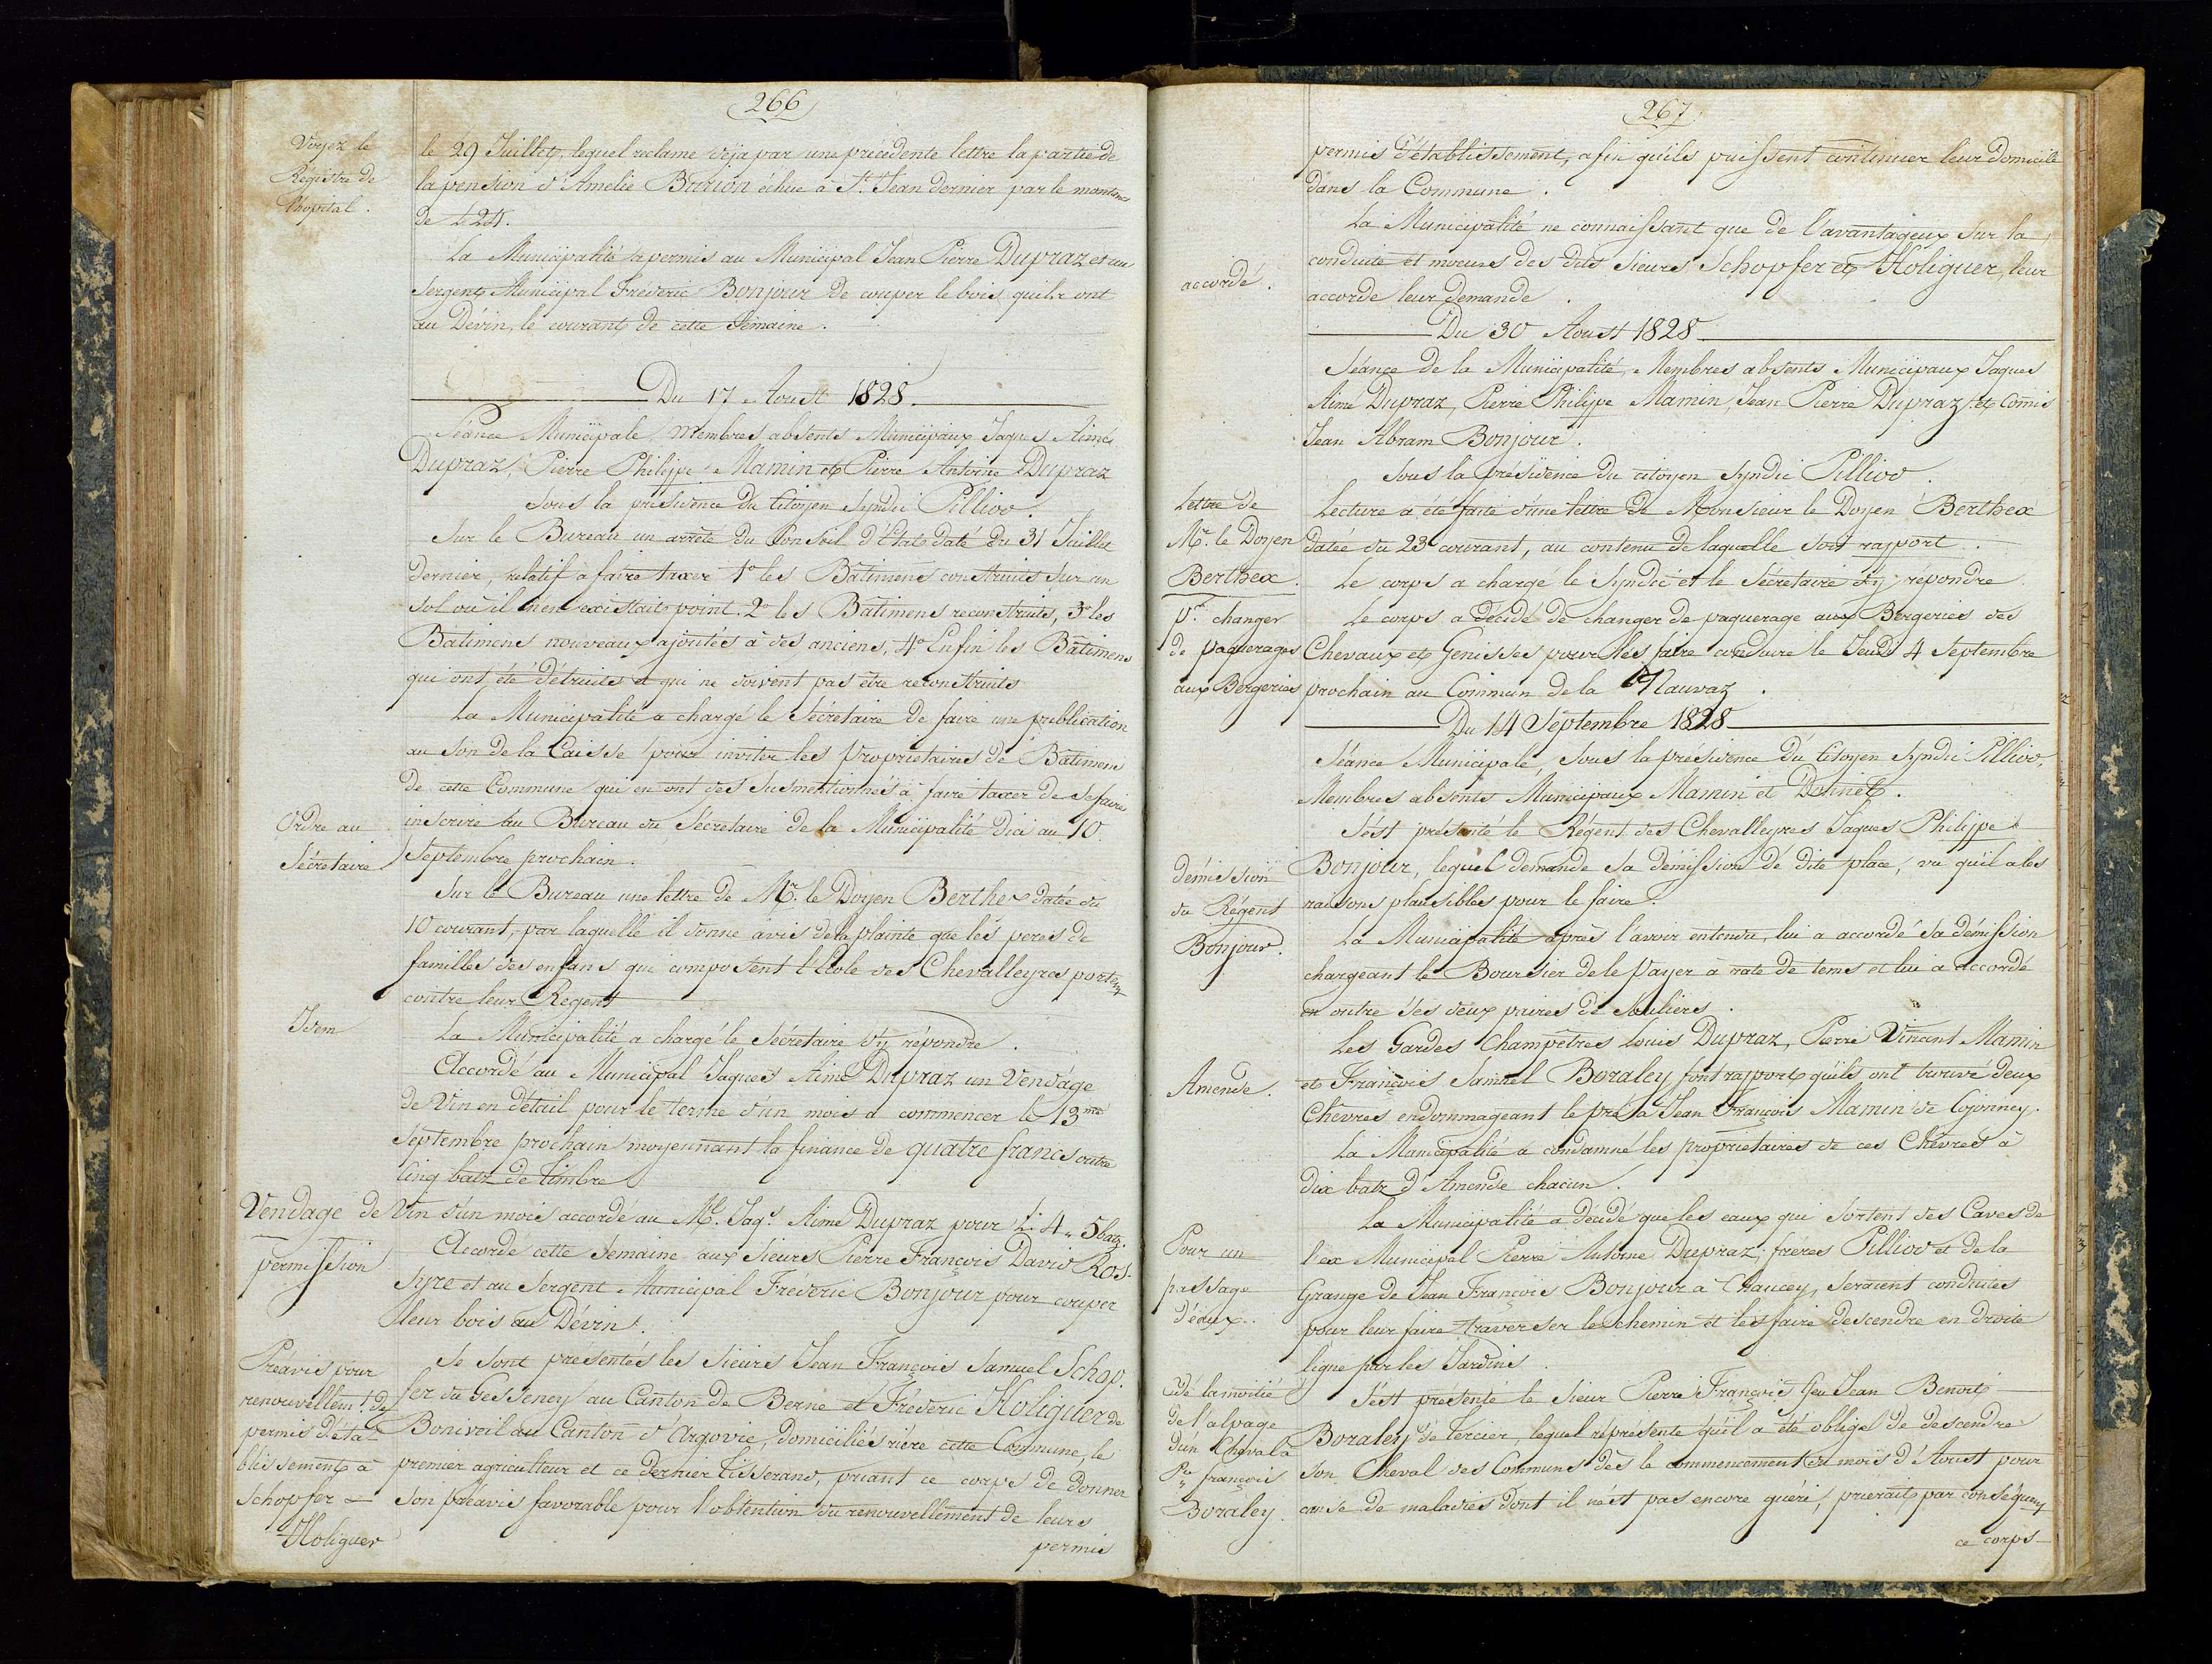 266
Voyez le
Régistre de
l'hopital.
le 29 Juillet, lequel reclame déja par une précédente lettre la partie de
la pension d'Amelie Burion échue à St. Jean dernier par le montant
de L 24.
La Municipalité a permis au Municipal Jean Pierre Dupraz et au
Sergent Municipal Fréderic Bonjour de couper le bois quils ont
au Dévin, le courant de cette Semaine.
Du 17 Aoust 1828.
Séance Municipale, Membres absents Municipaux Jaques Aimé
Dupraz, Pierre Philippe Mamin et Pierre Antoine Dupraz
Sous la présidence du Citoyen Syndic Pilliod.
Sur le Bureau un arrêté du Conseil d'Etat daté du 31 Juillet
dernier, relatif à faire taxer 1o les Bâtimens construits sur un
sol où il n'en existait point. 2o les Bâtimens reconstruits, 3o les
Batimens nouveaux ajoutés à des anciens, 4o Enfin les Bâtimens
qui ont été détruits et qui ne doivent pas être reconstruits
La Municipalité a chargé le Sécretaire de faire une publication
au son de la Caisse pour inviter les Proprietaires de Bâtimens
de cette Commune qui en ont des Susmentionnés à faire taxer de se faire
Ordre au
Sécretaire
inscrire au Bureau du Sécretaire de la Municipalité Dici au 10.
Septembre prochain.
Sur le Bureau une lettre de Mr. le Doyen Berthex datée du
10 courant, par laquelle il donne avis de la plainte que les peres de
familles des enfans qui composent l'Ecole des Chevalleyres portent
contre leur Regent
Idem
La Municipalité a chargé le Sécrétaire d'y répondre.
Accordé au Municipal Jaques Aimé Dupraz un Vendage
de Vin en détail pour le terme d'un mois à commencer le 13me
Septembre prochain moyennant la finance de quatre francs outre
Cinq batz de timbre
Vendage de Vin d'un mois accordé au Ml. Jaqs. Aimé Dupraz pour L. 4 „ 5 batz.
permission
Accordé cette Semaine aux Sieurs Pierre François David Ros-
Syre et au Sergent Municipal Fréderic Bonjour pour couper
leur bois au Dévin.
Préavis pour
renouvellemt. de
permis d'éta-
blissement à
Schopfer
Holiguer
Se sont presentés les Sieurs Jean François Samuel Schop-
fer du Gesseney au Canton de Berne et Fréderic Holiguer de
Bonivail au Canton d'Argovie, domiciliés rière cette Commune, le
premier agriculteur et ce dernier Tisserand, priant ce corps de donner
son préavis favorable pour l'obtention du renouvellement de leurs
permis
267
permis d'établissement, afin qu'ils puissent continuer leur domicile
dans la Commune.
accordé.
La Municipalité ne connaissant que de l'avantageux sur la
conduite et moeurs des dits Sieurs Schopfer et Holiguer, leur
accorde leur demande.
Du 30 Aoust 1828
Séance de la Municipalité, Membres absents Municipaux Jaques
Aimé Dupraz, Pierre Philippe Mamin, Jean Pierre Dupraz et Comis
Jean Abram Bonjour.
Sous la présidence du citoyen Syndic Pilliod.
Lettre de
Mr. le Doyen
Berthex.
Lecture a été faite d'une lettre de Monsieur le Doyen Berthex
datée du 23 courant, au contenu de laquelle soit rapport.
Le corps a chargé le Syndic et le Sécretaire d'y répondre.
Pr. changer
de paquerages
aux Bergeries
Le corps a décidé de changer de paquerage aux Bergeries des
Chevaux et Genisses pour les faire conduire le Jeudi 4 Septembre
prochain au Commun de la Nauvaz.
Du 14 Septembre 1828
Séance Municipale, sous la présidence du Citoyen Syndic Pilliod,
Membres absents Municipaux Mamin et Donnet.
démission
du Régent
Bonjour.
S'est présenté le Régent des Chevalleyres Jaques Philippe
Bonjour, lequel demande sa démission de dite place, vu qu'il a les
raisons plausibles pour le faire.
La Municipalité après l'avoir entendu, lui a accordé sa démission
chargeant le Boursier de le Payer à rate de tems et lui a accordé
en outre ses deux paires de Souliers.
Amende.
Les Gardes Champêtres Louis Dupraz, Pierre Vincent Mamin
et François Samuel Boraley font rapport qu'ils ont trouvé deux
Chêvres endommageant le pré à Jean François Mamin de Cojonney.
La Municipalité a condamné les proprietaires de ces Chêvres à
Dix batz d'Amende chacun.
Pour un
passage
d'eaux.
La Municipalité a décidé que les eaux qui sortent des Caves de
l'ex Municipal Pierre Antoine Dupraz, fréres Pilliod et de la
Grange de Jean François Bonjour à Chaucey, seraient conduites
pour leur faire traverser le chemin et les faire descendre en droite
ligne par les Jardins.
la moitié
de l'alpage
d'un Cheval à
Pre françois
Boraley.
S'est presenté le Sieur Pierre François feu Jean Benoit
Boraley de Tercier, lequel réprésente qu'il a été obligé de descendre
son Cheval des Communs dès le commencement du mois d'Aoust pour
cause de maladies dont il n'est pas encore guéri, prierait par conséquent
ce corps